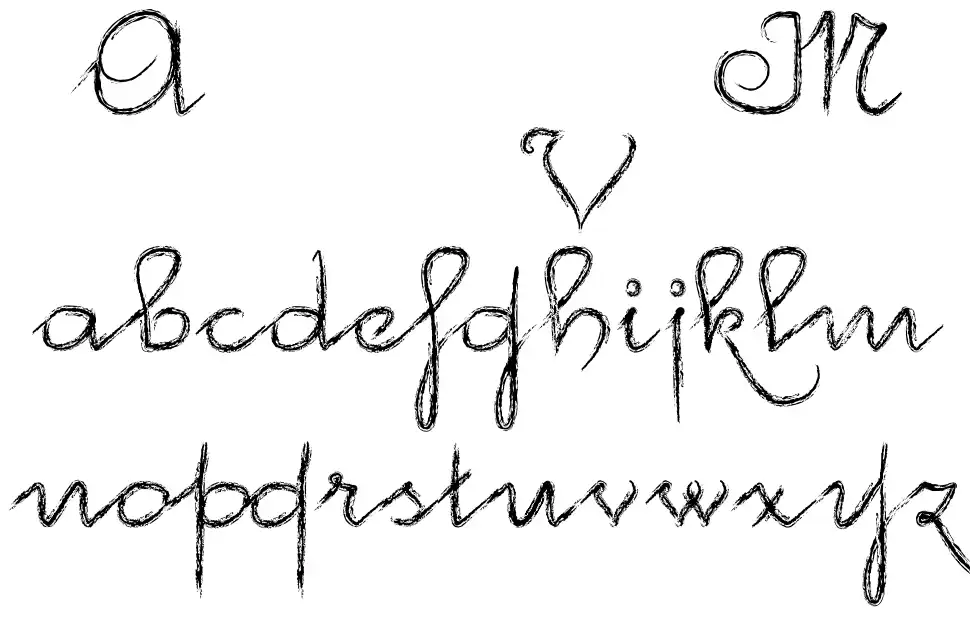 A M
V
abcdefghijklm
nopqrstuvwxyz